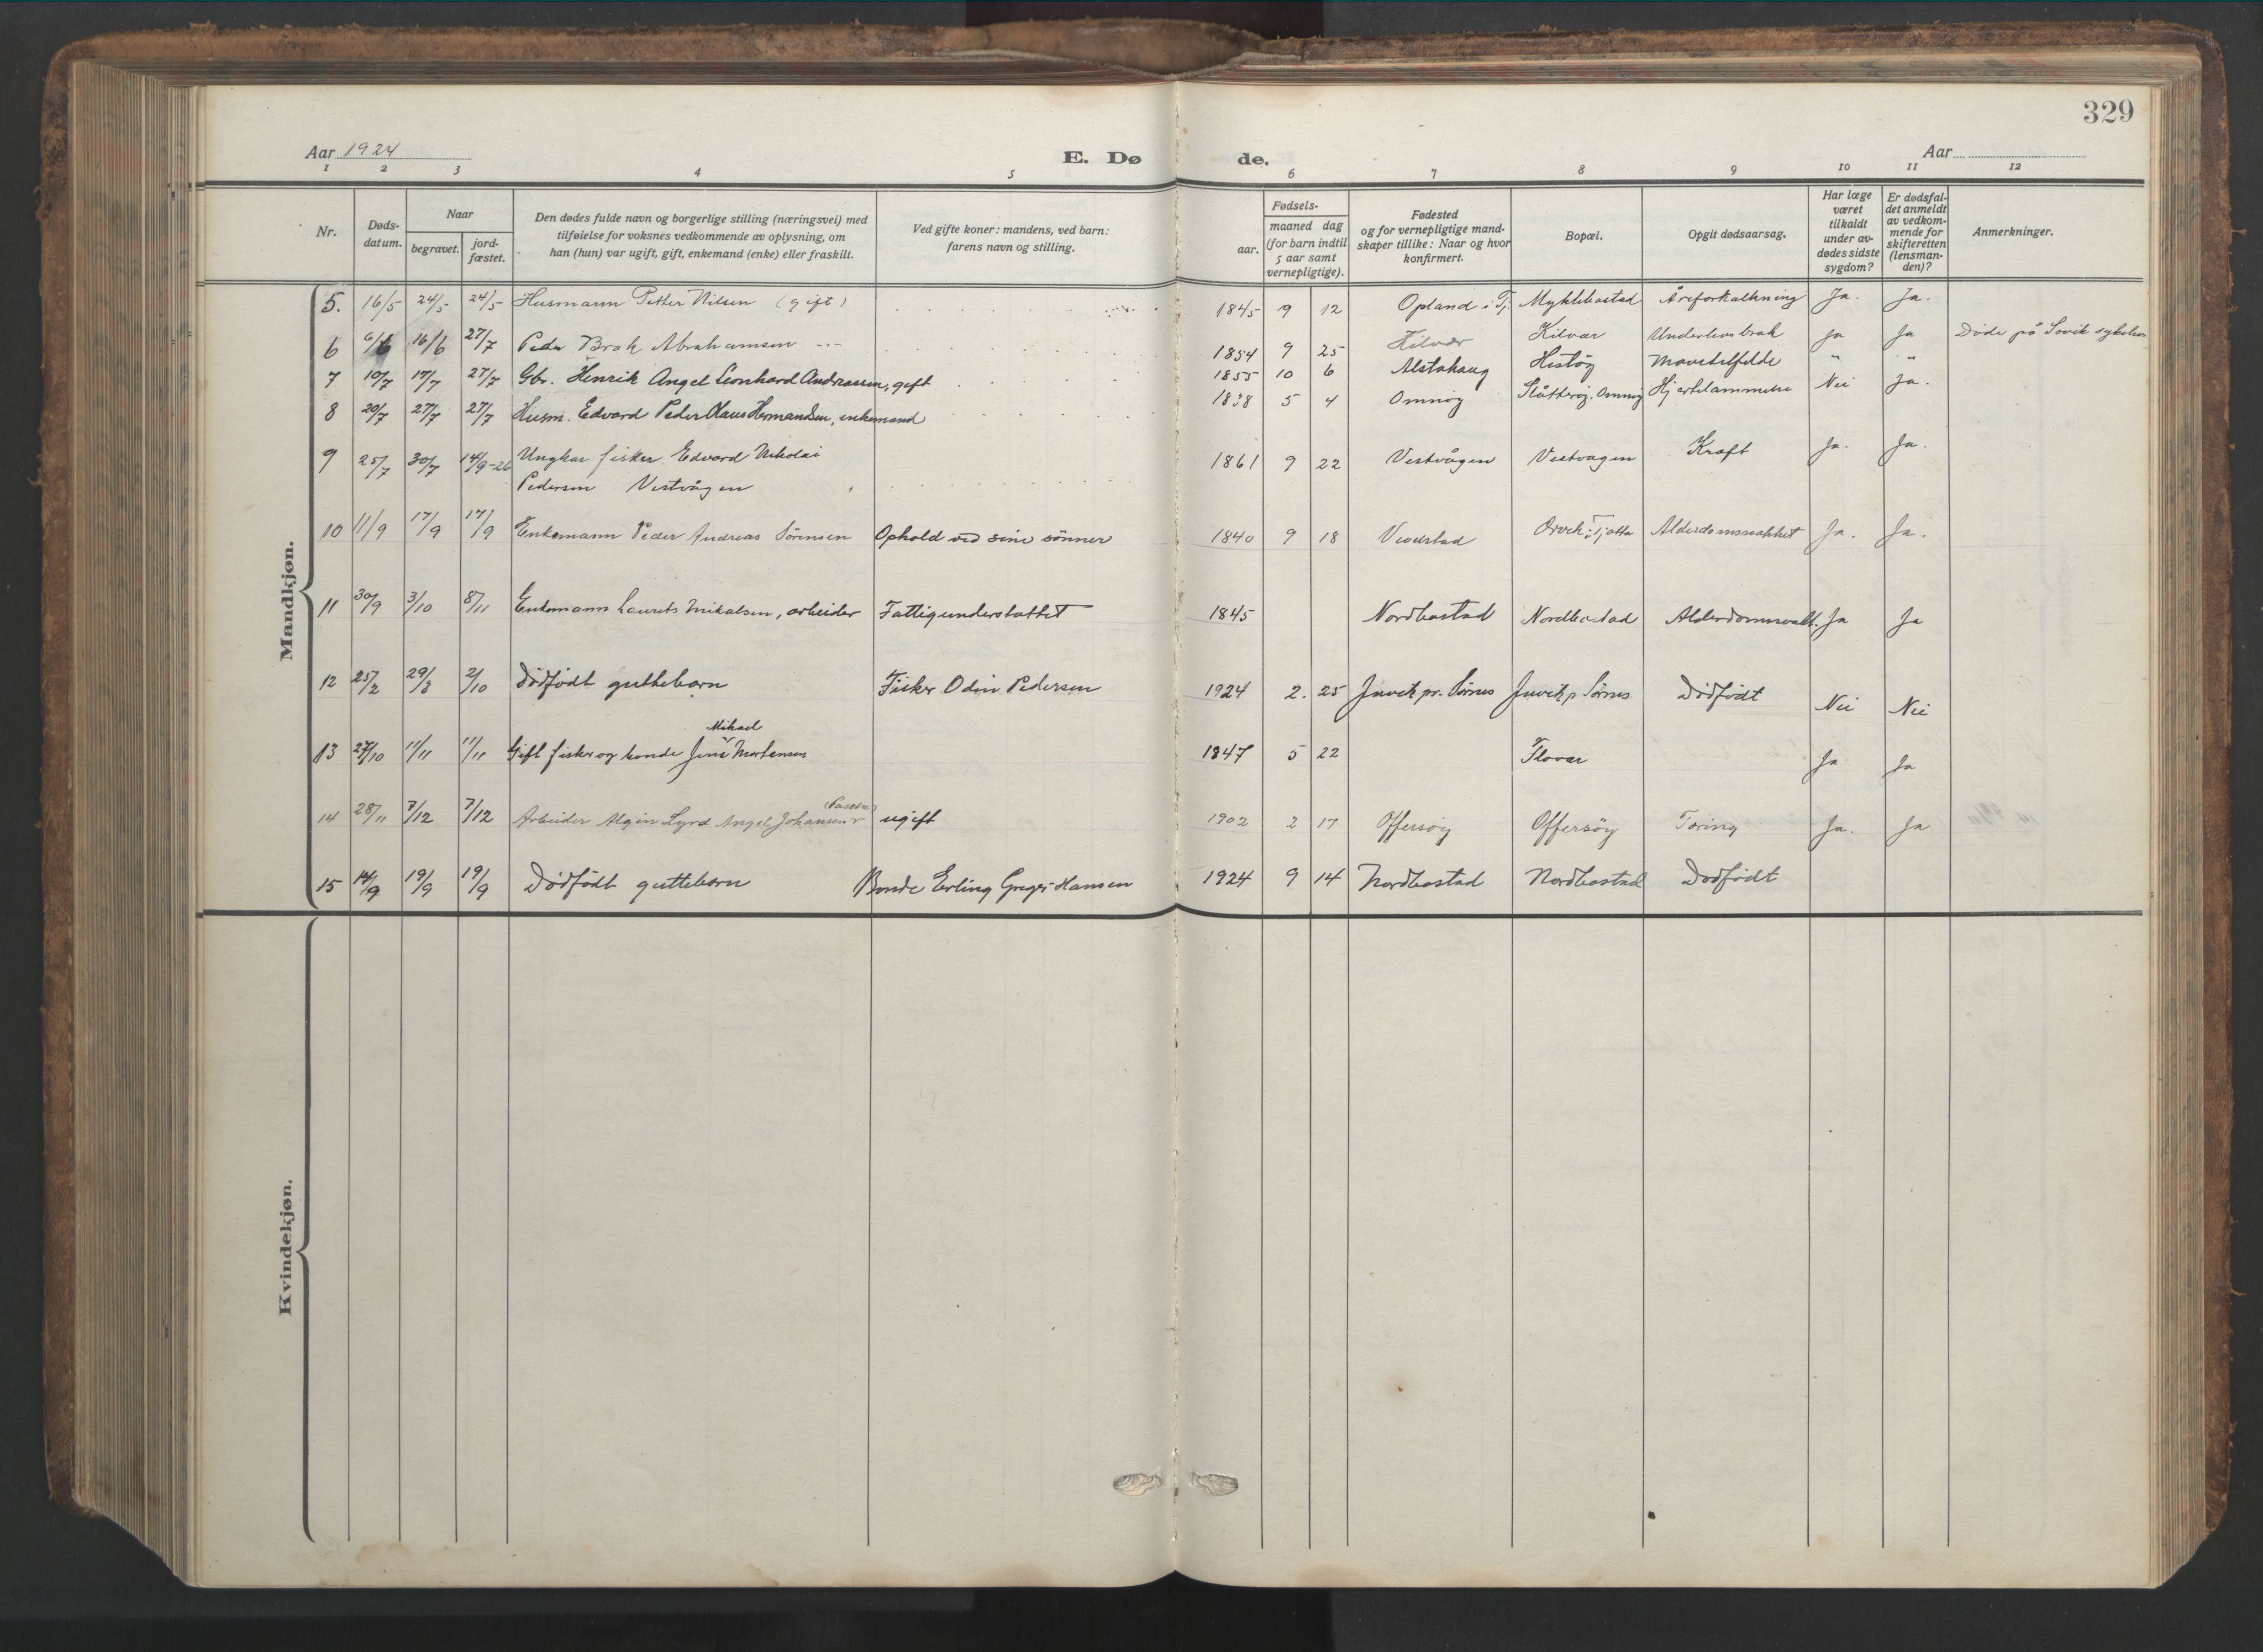 329
Aar 1924 E. Dø de. Aar
1 2 3 4 5 6 7 8 9 10 11 12
Nr. Døds-datum. Naar begravet. jord-fæstet. Den dødes fulde navn og borgerlige stilling (næringsvei) med tilføielse for voksnes vedkommende av oplysning, om han (hun) var ugift, gift, enkemand (enke) eller fraskilt. Ved gifte koner: mandens, ved barn: farens navn og stilling. Fødsels- aar. maaned dag (for barn indtil 5 aar samt vernepligtige). Fødested og for vernepligtige mand-skaper tillike: Naar og hvor konfirmert. Bopæl. Opgit dødsaarsag. Har læge været tilkaldt under av-dødes sidste sygdom? Er dødsfal-det anmeldt av vedkom-mende for skifteretten (lensman-den)? Anmerkninger.
Mandkjøn.
5. 16/5 24/5 24/5 Husmann Petter Nilsen (gift) 1845 9 12 Opland i Tj. Myklebostad Åreforkalkning Ja. Ja.
6 6/6 16/6 27/7 Peder Brok Abrahamsen 1854 9 25 Kilvær Kilvær Underlivsbrok Ja Ja Døde på Sovik sykehus
7 10/7 17/7 27/7 Gbr. Henrik Angel Leonhard Andreassen, gift 1855 10 6 Alstahaug Histøy Mavetilfelde " "
8 20/7 27/7 27/7 Husm. Edvard Peder Klaus Hermandsen, enkemand 1838 5 4 Omnøy Slåtterøy, Omnøy Hjertelammelse Nei Ja.
9 25/7 30/7 14/9-26 Ungkar fisker Edvard Nikolai
Pedersen Vestvågen 1861 9 22 Vestvågen Vestvagen Kræft Ja. Ja.
10 11/9 17/9 17/9 Enkemann Peder Andreas Sörensen Ophold ved sine sönner 1840 9 18 Vevelstad i Tjøtta Alderdomssvakhet Ja. Ja.
11 30/9 3/10 8/11 Enkemann Laurets Mikalsen, arbeider Fattigunderstøttet 1845 Nordbostad Nordbostad Alderdomssvakh. Ja Ja
12 25/2 29/3 2/10 Dödfödt guttebarn Fisker Odin Pedersen 1924 2. 25 Juvik pr. Sørnes Juvik p Sørnes Dödfödt Nei Nei
Mikael
13 27/10 11/11 11/11 Gift fisker og bonde Jens Mortensen 1847 5 22 Flovær Ja Ja
14 28/11 7/12 7/12 Arbeider Algin Lyrd Angel Johansen ugift 1902 2 17 Offersøy Offersöy Tæring Ja. Ja
15 14/9 19/9 19/9 Dödfödt guttebarn Bonde Erling Greger Hansen 1924 9 14 Nordbostad Nordbostad Dödfödt
Kvindekjøn.